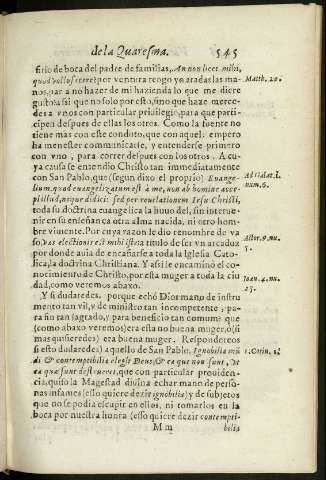 de la Quaresma. 545
sirio de boca del padre de familias, An non licet mihi,
quod volo facere? por ventura tengo yo atadas las ma- Matth. 20.
nos, para no hazer de mi hazienda lo que me diere
gusto? a si que no solo por esto, sino que haze merce-
des a vnos con particular priuilegio, para que parti-
cipen despues de ellas los otros. Como la fuente no
tiene mas con este conduto, que con aquel: empero
ha menester communicarse, y entenderse primero
con vno, para correr despues con los otros. A cu-
ya causa se entendio Christo tan immediatamente
con San Pablo, que (segun dixo el proprio) Euange- Ad Galat. 1.
lium, quod euangelizatum est à me, non ab homine acce- num. 6.
pi illud, neque didici: sed per reuelationem Iesu Christi,
toda su doctrina euangelica la huuo del, sin interue-
nir en su enseñança otra alma nacida, ni otro hom
bre viuiente. Por cuya razon le dio renombre de va
so, vas electionis est mihi iste: a titulo de ser vn arcaduz Actor. 9. nu.
por donde auia de encañarse a toda la Iglesia Cato- 5.
lica, la doctrina Christiana. Y assi le encaminó el co
nocimiento de Christo, por esta muger a toda la ciu Ioan. 4. nu.
dad, como veremos abaxo. 25.
Y si dudaredes, porque echó Dios mano de instru
mento tan vil, y de ministro tan incompetente, pa-
ra fin tan sagrado, y para beneficio tan comun: que
(como abaxo veremos) era esta no buena muger, ò (si
mas quisieredes) era buena muger. Responderos
si esto dudaredes) aquello de San Pablo, Ignobilia mũ 1. Corin. 1.
di & contemptibilia elegit Deus, & ea quæ non sunt, vt
ea quæ sunt destrueret, que con particular prouiden-
cia, quiso la Magestad diuina echar mano de perso-
nas infames (esso quiere dezir ignobilia) y de subjetos
que no se podia escupir en ellos, ni tomarlos en la
boca por nuestra honra (esso quiere dezir contempti-
M m bilia